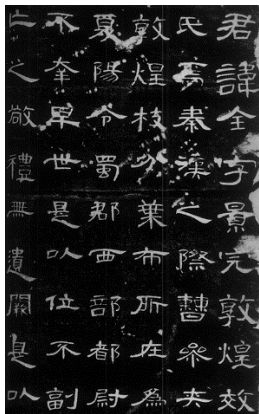 君諱全字景完敦煌效
氏焉秦漢之際曹參夾
敦煌枝分葉布所在為
夏陽令蜀郡西部都尉
不幸早世是以位不副
亡之敬禮無遺闕是以